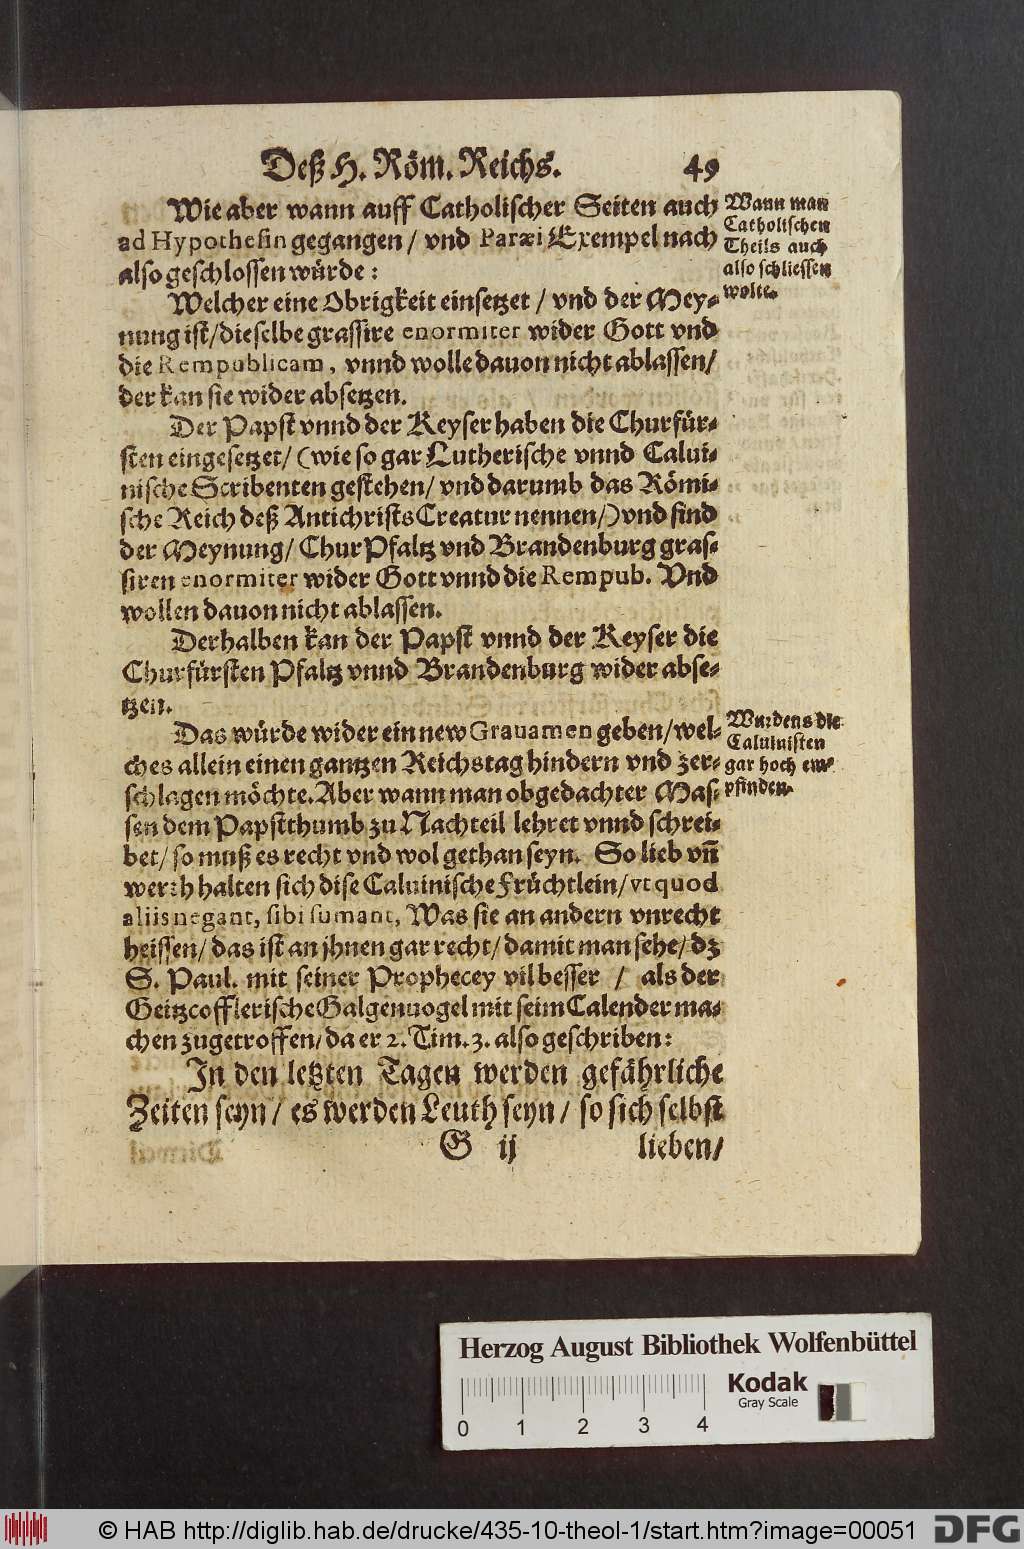 Deß H. Röm. Reichs. 49
Wie aber wann auff Catholischer Seiten auch
ad Hypothesin gegangen / vnd Paræi Exempel nach
also geschlossen würde:
Wann man
Catholischen
Theils auch
also schliessen
wolte.
Welcher eine Obrigkeit einsetzet / vnd der Mey-
nung ist/dieselbe grassire enormiter wider Gott vnd
die Rempublicam, vnnd wolle dauon nicht ablassen/
der kan sie wider absetzen.
Der Papst vnnd der Keyser haben die Churfür-
sten eingesetzet/ (wie so gar Lutherische vnnd Calui-
nische Scribenten gestehen/ vnd darumb das Römi-
sche Reich deß Antichrists Creatur nennen/) vnd sind
der Meynung/ ChurPfaltz vnd Brandenburg gras-
siren enormiter wider Gott vnnd die Rempub. Vnd
wollen dauon nicht ablassen.
Derhalben kan der Papst vnnd der Keyser die
Churfürsten Pfaltz vnnd Brandenburg wider abse-
tzen.
Das würde wider ein new Grauamen geben/wel-
ches allein einen gantzen Reichstag hindern vnd zer-
schlagen möchte. Aber wann man obgedachter Mas-
sen dem Papstthumb zu Nachteil lehret vnnd schrei-
bet/ so muß es recht vnd wol gethan seyn. So lieb vñ
werth halten sich dise Caluinische Früchtlein/vt quod
aliis negant, sibi sumant, Was sie an andern vnrecht
heissen/ das ist an jhnen gar recht/ damit man sehe/ dz
S. Paul. mit seiner Prophecey vil besser / als der
Geitzcofflerische Galgenuogel mit seim Calender ma-
chen zugetroffen/ da er 2. Tim. 3. also geschriben:
Wurdens die
Caluinisten
gar hoch em-
pfinden.
In den letzten Tagen werden gefährliche
Zeiten seyn / es werden Leuth seyn / so sich selbst
G ij lieben/
Herzog August Bibliothek Wolfenbüttel
Kodak
Gray Scale
0 1 2 3 4
© HAB http://diglib.hab.de/drucke/435-10-theol-1/start.htm?image=00051
DFG